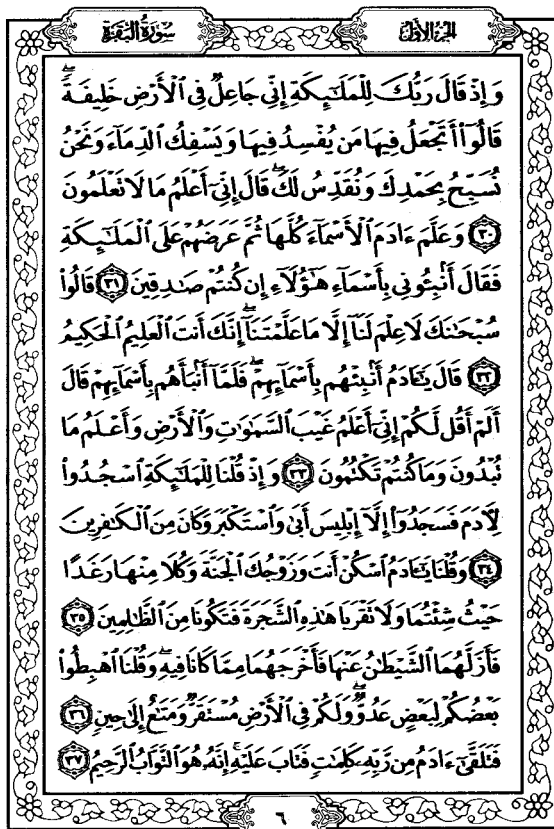 سورة البقرة
الجزء الأول
وَإِذْ قَالَ رَبُّكَ لِلْمَلَٰٓئِكَةِ إِنِّى جَاعِلٌ فِى ٱلْأَرْضِ خَلِيفَةً ۖ
قَالُوٓا۟ أَتَجْعَلُ فِيهَا مَن يُفْسِدُ فِيهَا وَيَسْفِكُ ٱلدِّمَآءَ وَنَحْنُ
نُسَبِّحُ بِحَمْدِكَ وَنُقَدِّسُ لَكَ ۖ قَالَ إِنِّىٓ أَعْلَمُ مَا لَا تَعْلَمُونَ
٣٠ وَعَلَّمَ ءَادَمَ ٱلْأَسْمَآءَ كُلَّهَا ثُمَّ عَرَضَهُمْ عَلَى ٱلْمَلَٰٓئِكَةِ
فَقَالَ أَنۢبِـُٔونِى بِأَسْمَآءِ هَٰٓؤُلَآءِ إِن كُنتُمْ صَٰدِقِينَ ٣١ قَالُوا۟
سُبْحَٰنَكَ لَا عِلْمَ لَنَآ إِلَّا مَا عَلَّمْتَنَآ ۖ إِنَّكَ أَنتَ ٱلْعَلِيمُ ٱلْحَكِيمُ
٣٢ قَالَ يَٰٓـَٔادَمُ أَنۢبِئْهُم بِأَسْمَآئِهِمْ ۖ فَلَمَّآ أَنۢبَأَهُم بِأَسْمَآئِهِمْ قَالَ
أَلَمْ أَقُل لَّكُمْ إِنِّىٓ أَعْلَمُ غَيْبَ ٱلسَّمَٰوَٰتِ وَٱلْأَرْضِ وَأَعْلَمُ مَا
تُبْدُونَ وَمَا كُنتُمْ تَكْتُمُونَ ٣٣ وَإِذْ قُلْنَا لِلْمَلَٰٓئِكَةِ ٱسْجُدُوا۟
لِءَادَمَ فَسَجَدُوٓا۟ إِلَّآ إِبْلِيسَ أَبَىٰ وَٱسْتَكْبَرَ وَكَانَ مِنَ ٱلْكَٰفِرِينَ
٣٤ وَقُلْنَا يَٰٓـَٔادَمُ ٱسْكُنْ أَنتَ وَزَوْجُكَ ٱلْجَنَّةَ وَكُلَا مِنْهَا رَغَدًا
حَيْثُ شِئْتُمَا وَلَا تَقْرَبَا هَٰذِهِ ٱلشَّجَرَةَ فَتَكُونَا مِنَ ٱلظَّٰلِمِينَ ٣٥
فَأَزَلَّهُمَا ٱلشَّيْطَٰنُ عَنْهَا فَأَخْرَجَهُمَا مِمَّا كَانَا فِيهِ ۖ وَقُلْنَا ٱهْبِطُوا۟
بَعْضُكُمْ لِبَعْضٍ عَدُوٌّ ۖ وَلَكُمْ فِى ٱلْأَرْضِ مُسْتَقَرٌّ وَمَتَٰعٌ إِلَىٰ حِينٍ ٣٦
فَتَلَقَّىٰٓ ءَادَمُ مِن رَّبِّهِۦ كَلِمَٰتٍ فَتَابَ عَلَيْهِ ۚ إِنَّهُۥ هُوَ ٱلتَّوَّابُ ٱلرَّحِيمُ ٣٧
٦